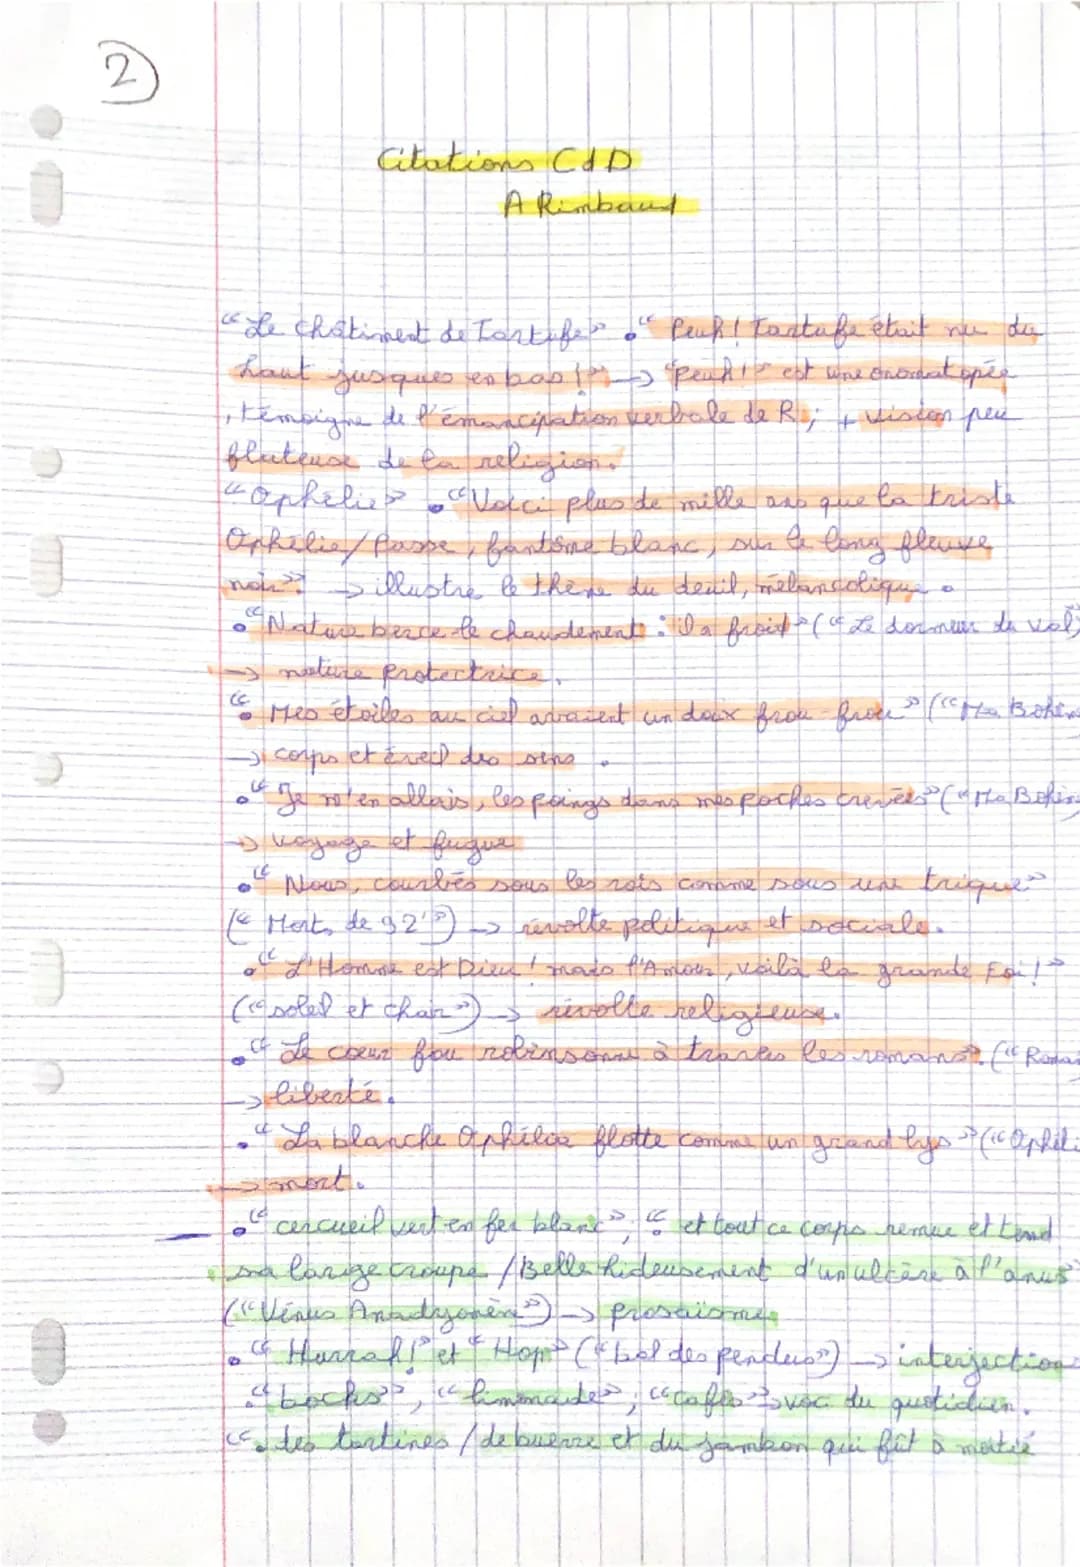 2
Citations CdD
A Rimbaud
"Le châtiment de Tartufe" • "Peuh! Tartufe était nu du
haut jusques en bas!" → "Peuh!" est une onomatopée
, témoigne de l'émancipation verbale de R; + vision peu
flateuse de la religion.
"Ophélie" • "Voici plus de mille ans que la triste
Ophélie/ Passe, fantôme blanc, sur le long fleuve
noir" → illustre le thème du deuil, mélancolique.
• "Nature berce-le chaudement : il a froid" ("Le dormeur du val"
→ nature protectrice.
• "Mes étoiles au ciel avaient un doux frou-frou" ("Ma Bohèm
→ corps et éveil des sens.
• "Je m'en allais, les poings dans mes poches crevées" ("Ma Bohèm
→ voyage et fugue
• "Nous, courbés sous les rois comme sous une trique"
("Morts de 92") → révolte politique et sociale.
• "L'Homme est Dieu! mais l'Amour, voilà la grande Foi!"
("soleil et chair") → révolte religieuse.
• "Le coeur fou robinsonne à travers les romans". ("Roman
→ liberté.
• "La blanche Ophélia flotte comme un grand lys" ("Ophéli
→ mort.
• "cercueil vert en fer blanc"; "et tout ce corps remue et tend
sa large croupe / Belle hideusement d'un ulcère à l'anus"
("Vénus Anadyomène") → prosaïsme
• "Hurrah!" et "Hop" ("bal des pendus") → interjection
• "bocks", "limonade", "cafés" → voc du quotidien.
"• des tartines / de buerre et du jambon qui fût à moitié